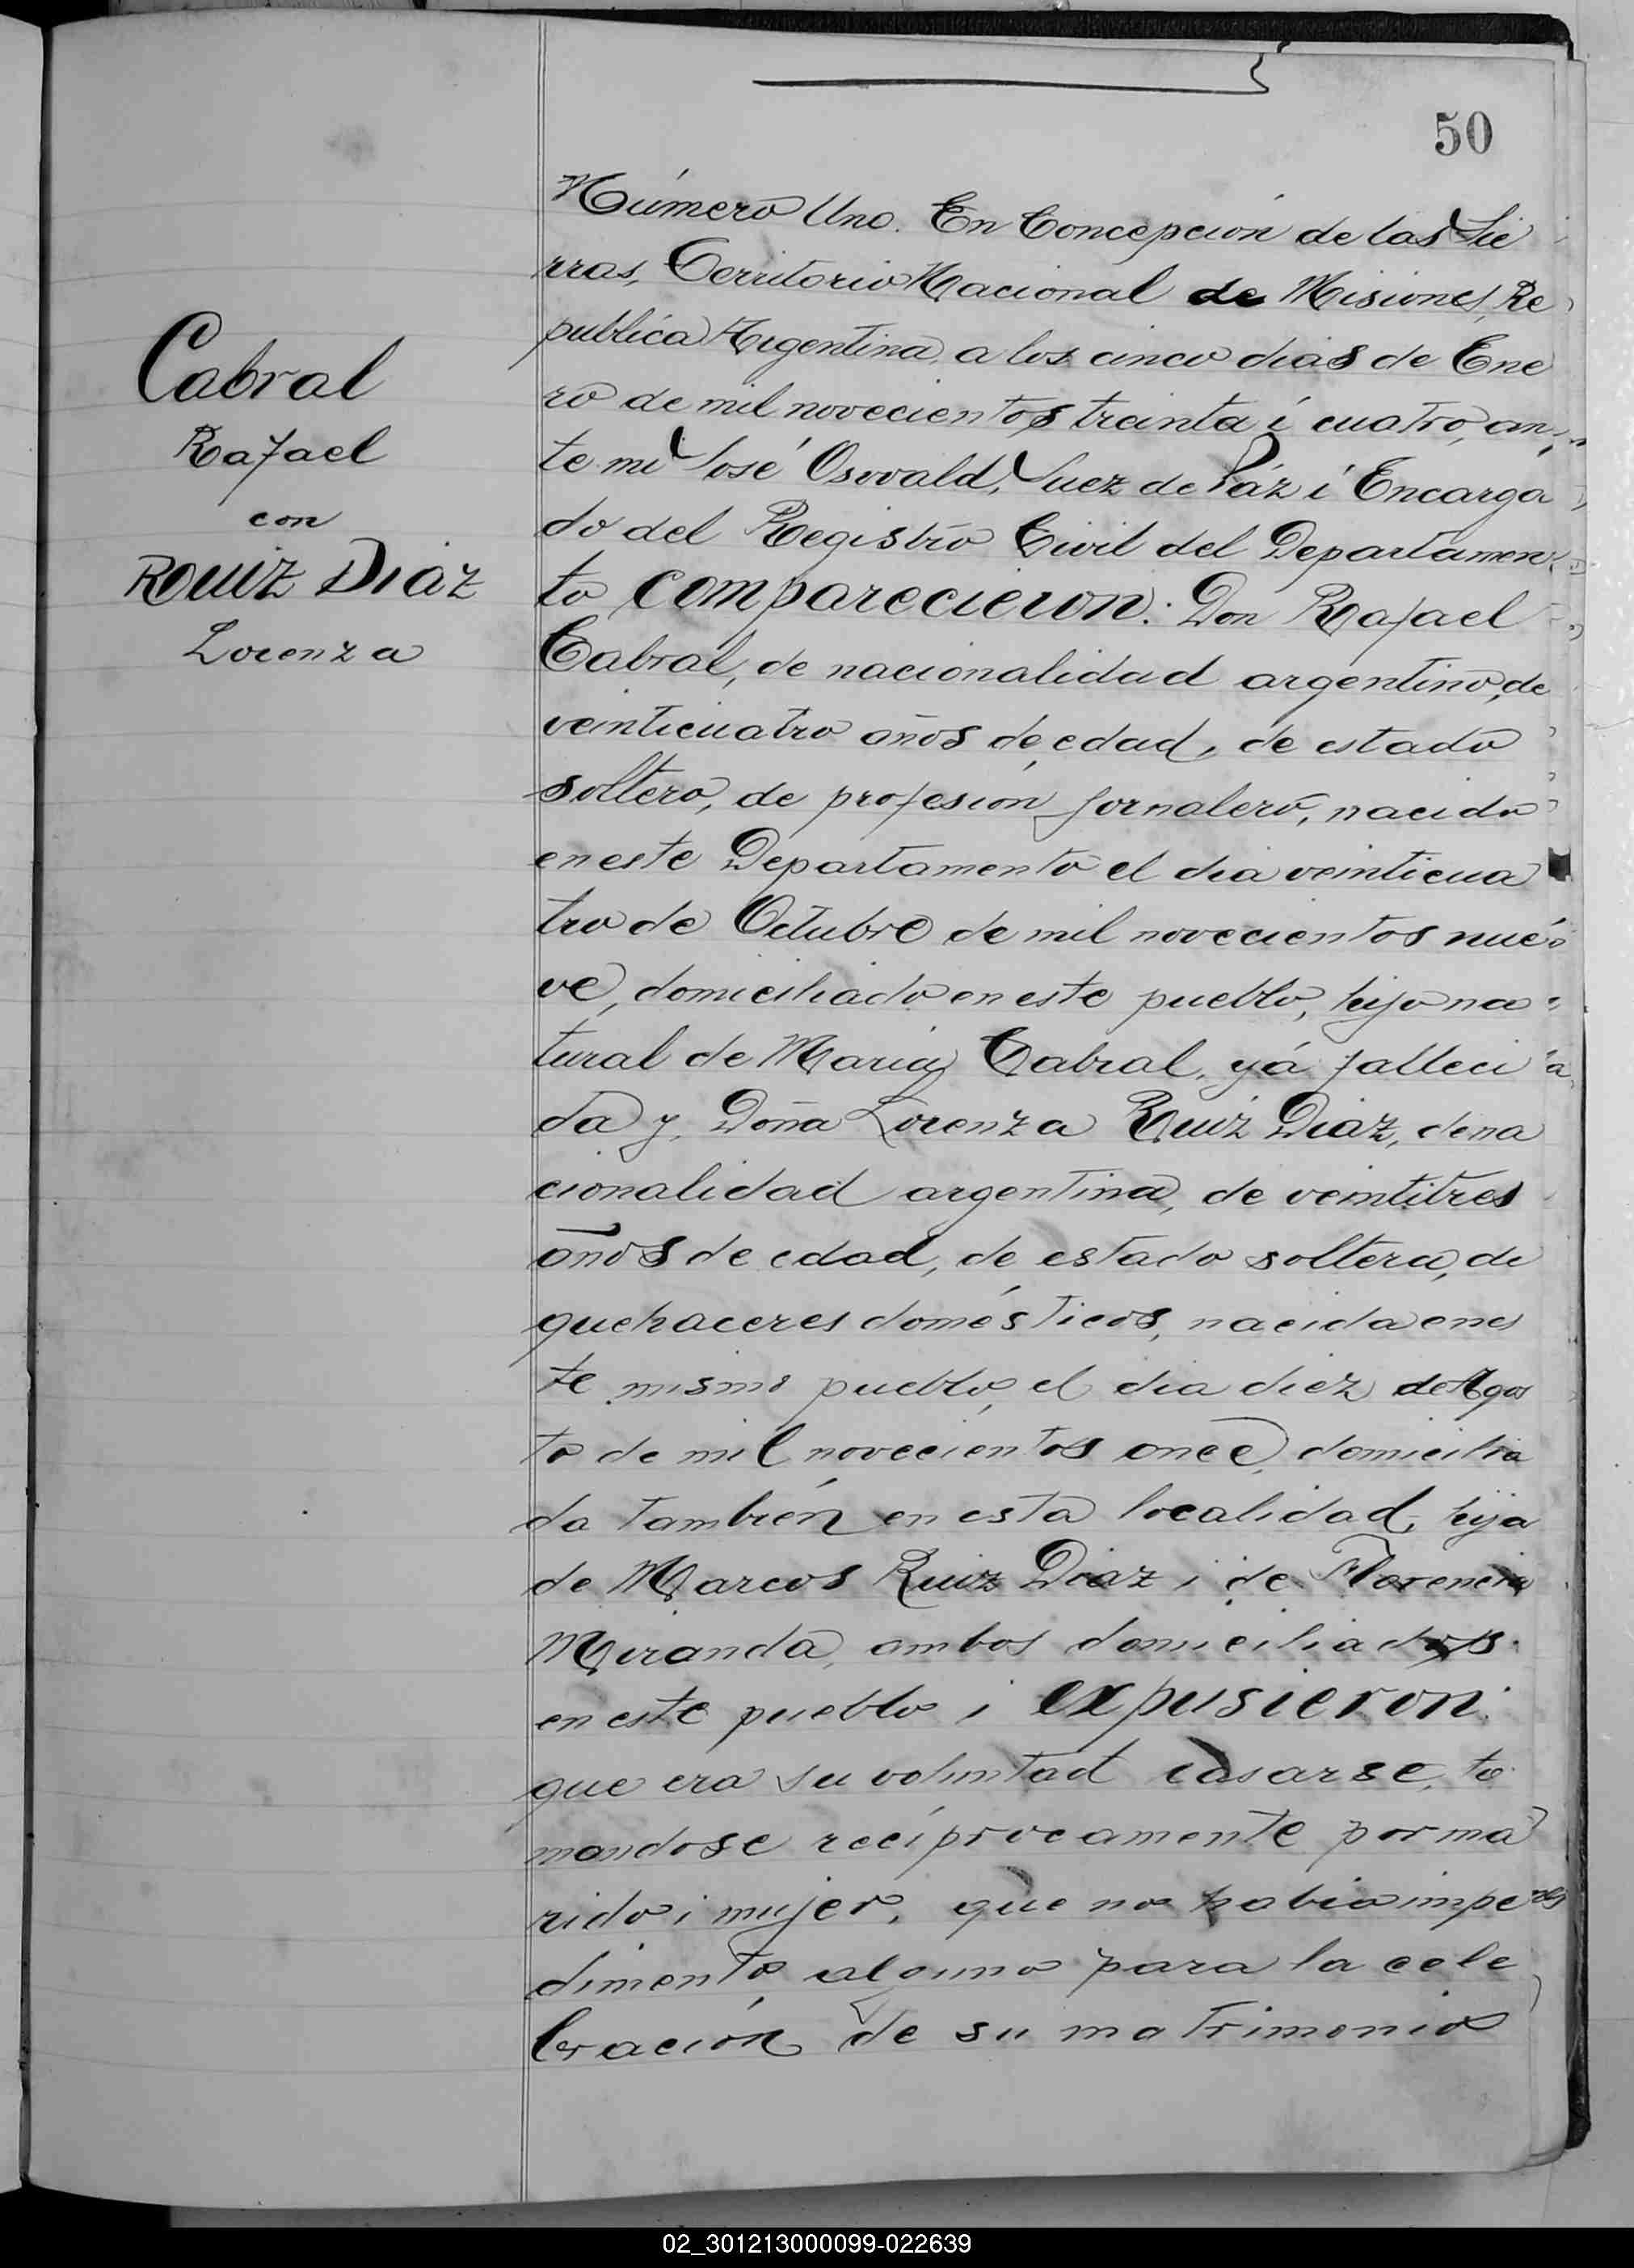 50
Cabral
Rafael
con
Ruiz Diaz
Lorenza
Número Uno. En Concepción de las Sie
rras, Territorio Nacional de Misiones, Re
publica Argentina, a los cinco dias de Ene
ro de mil novecientos treinta i cuatro, an
te mi José Osvvald, Juez de Páz i Encarga
do del Registro Civil del Departamen
to comparecieron: Don Rafael
Cabral, de nacionalidad argentino, de
veinticuatro años de edad, de estado
soltero, de profesión jornalero, nacido
en este Departamento el dia veinticua
tro de Octubre de mil novecientos nue
ve, domiciliado en este pueblo, hijo na
tural de Maria Cabral, yá falleci
da y, Doña Lorenza Ruiz Diaz, de na
cionalidad argentina, de veintitres
años de edad, de estado soltera, de
quehaceres domésticos, nacida en es
te mismo pueblo, el dia diez de Agos
to de mil novecientos once, domicilia
da también en esta localidad, hija
de Marcos Ruiz Diaz i de Florencia
Miranda, ambos domiciliados
en este pueblo i expusieron:
que era su voluntad casarse, to
mandose recíprocamente por ma
rido i mujer, que no habia impe
dimento alguno para la cele
bración de su matrimonio
02_301213000099-022639